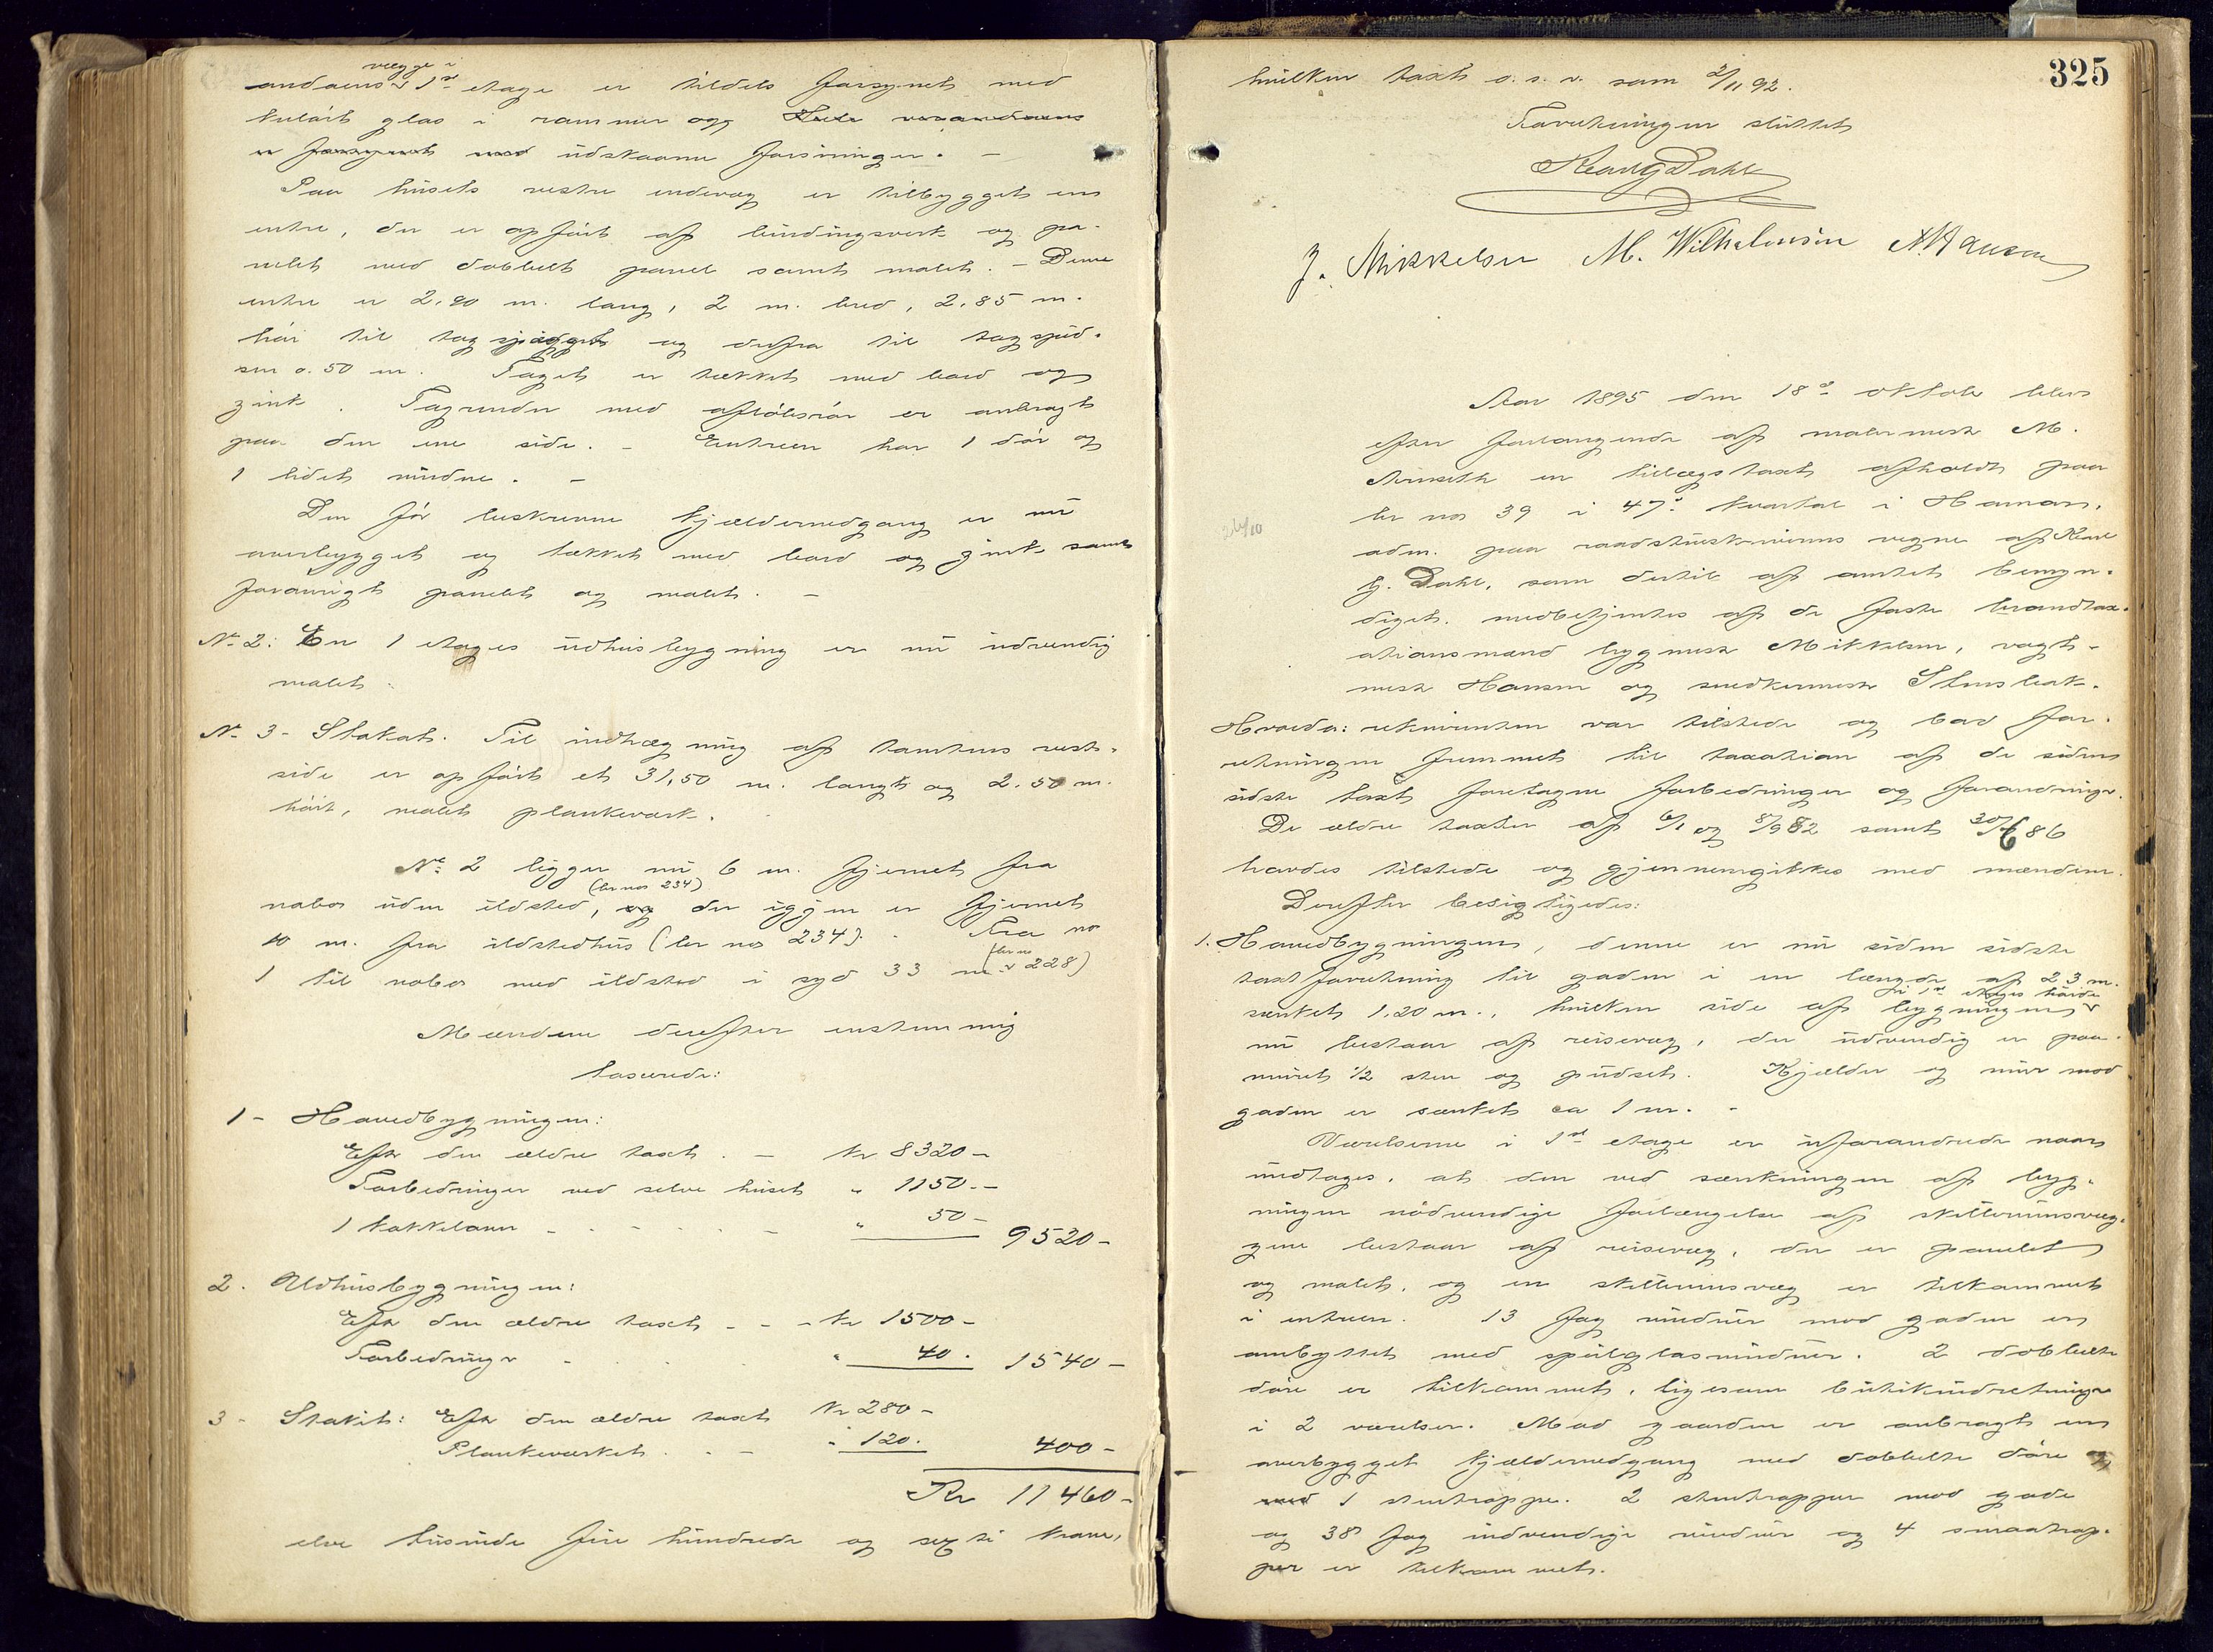 vægge i
andaens 1ste etage er tildels forsynet med
kulørt glas i rammer og hele verandaens
er forsynet med udskaarne forsiringer. -
Paa husets vestre endevæg er tilbygget en
entre, der er opført af bindingsverk og pa-
nelet med dobbelt panel samt malet. - Denne
entre er 2,90 m. lang, 2 m. bred, 2,85 m.
høi til tagskjægget og derfra til tagspid-
sen 0.50 m. Taget er tækket med bord og
zink. Tagrender med afløbsrør er anbragt
paa den ene side. - Entreen har 1 dør og
1 lidet vindue. -
Den før beskrevne kjældernedgang er nu
overbygget og tækket med bord og zink samt
forøvrigt panelet og malet. -
No 2: En 1 etages udhusbygning er nu udvendig
malet.
No 3 - Stakit. Til indhægning af tomtens vest-
side er opført et 31,50 m. langt og 2.50 m.
høit, malet plankeværk.
No 2 ligger nu 6 m. fjernet fra
(br no 234)
nabo uden ildsted, og der igjen er fjernet
10 m. fra ildstedhus (br no 234). Fra no
(br no
1 til nabo med ildsted i syd 33 m. 228)
Mændene derefter enstemmig
taxerede:
1 - Hovedbygningen:
Efter den ældre taxt . - Kr 8320 -
Forbedringer ved selve huset " 1150.-
1 kakkelovn - . . . . - " 50 - 9520 -
2. Udhusbygningen:
Efter den ældre taxt - - - Kr 1500 -
Forbedringer - . . . " 40. 1540 -
3 - Stakit: Efter den ældre taxt Kr 280 -
Plankeværket . . - " 120. 400 -
Kr 11460 -
elve tusinde fire hundrede og sexti kroner,
325
hvilken taxt o. s. v. som 2/11 92.
Forretningen sluttet
Karl G Dahl
J. Mikkelsen M. Wilhelmsen A. Hansen
Aar 1895 den 18de oktober blev
efter forlangende af malermester M.
en tillægstaxt afholdt paa
br no 39 i 47de kvartal i Hamar,
26/10
adm. paa raadstueskriverens vegne af Karl
G. Dahl, som dertil af amtet bemyn-
diget. medbetjentes af de faste brandtax-
ationsmænd bygmester Mikkelsen, vogt-
mester Hansen og snedkermester Stensbak.
Hvorda: rekvirenten var tilstede og bad for-
retningen fremmet til taxation af de siden
sidste taxt foretagne forbedringer og forandringer.
De ældre taxter af 6/1 og 8/9 82 samt 30/6 86
havdes tilstede og gjennemgikkes med mændene.
Derefter besigtigedes:
1. Hovedbygningen, denne er nu siden sidste
taxtforretning til gaden i en længde af 23 m.
i 1ste etages høide
sænket 1.20 m., hvilken side af bygningen
nu bestaar af reisevæg, der udvendig er paa-
muret 1/2 sten og pudset. Kjælder og mur mod
gaden er sænket ca 1 m. -
Værelserne i 1ste etage er uforandrede naar
undtages, at den ved sænkningen af byg-
ningen nødvendige forlængelse af skillerumsvæg-
gene bestaar af reisevæg, der er panelet
og malet, og en skillerumsvæg er tilkommet
i entreen. 13 fag vinduer mod gaden er
ombyttet med speilglasvinduer. 2 dobbelte
døre er tilkommet, ligesom butikindretninger
i 2 værelser. Mod gaarden er anbragt en
overbygget kjældernedgang med dobbelte døre og
med 1 stentrappe. 2 stentrapper mod gade
og 38 fag indvendige vinduer og 4 smaatrap-
per er tilkommet.